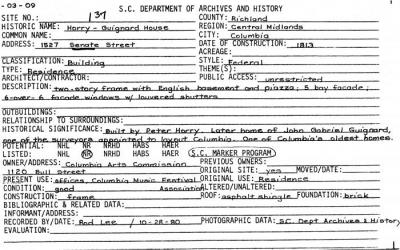 - 03 - 09
S.C. DEPARTMENT OF ARCHIVES AND HISTORY
SITE NO.: 137 COUNTY: Richland
HISTORIC NAME: Horry - Guignard House REGION: Central Midlands
COMMON NAME: CITY: Columbia
ADDRESS: 1527 Senate Street DATE OF CONSTRUCTION: 1813
ACREAGE:
CLASSIFICATION: Building STYLE: Federal
TYPE: Residence THEME(S):
ARCHITECT/CONTRACTOR: PUBLIC ACCESS: unrestricted
DESCRIPTION: two-story frame with English basement and piazza; 5 bay facade;
6-over-6 facade windows w/ louvered shutters
OUTBUILDINGS:
RELATIONSHIP TO SURROUNDINGS:
HISTORICAL SIGNIFICANCE: Built by Peter Horry. Later home of John Gabriel Guignard,
one of the surveyors appointed to layout Columbia. One of Columbia's oldest homes.
POTENTIAL: NHL NR NRHD HABS HAER
LISTED: NHL NR NRHD HABS HAER (S.C. MARKER PROGRAM)
OWNER/ADDRESS: Columbia Arts Commission PREVIOUS OWNERS:
1120 Bull Street ORIGINAL SITE: yes MOVED/DATE:
PRESENT USE: offices, Columbia Music Festival Association ORIGINAL USE: Residence
CONDITION: good ALTERED/UNALTERED:
CONSTRUCTION: frame ROOF: asphalt shingle FOUNDATION: brick
BIBLIOGRAPHIC & RELATED DATA:
INFORMANT/ADDRESS:
RECORDED BY/DATE: Rod Lee / 10-28-80 PHOTOGRAPHIC DATA: S.C. Dept Archives & History
EVALUATION: